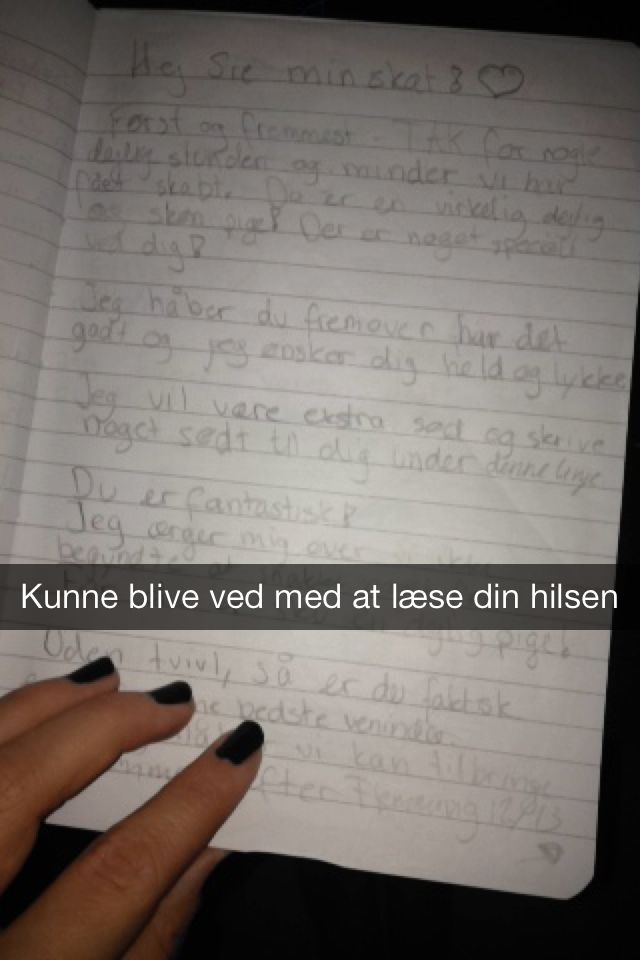 Hej Sie min skat! ♡
Først og fremmest - TAK for nogle
dejlig stunder og minder vi har
fået skabt. Du er en virkelig dejlig
og skøn pige! Der er noget specielt
ved dig!
Jeg håber du fremover har det
godt og jeg ønsker dig held og lykke
Jeg vil være ekstra sød og skrive
noget sødt til dig under denne linje
Du er fantastisk!
Jeg ærger mig over vi ikke
begyndte at
Kunne blive ved med at læse din hilsen
pige!
Uden tvivl, så er du faktisk
bedste veninder.
vi kan tilbringe
efter Flemming 12/13